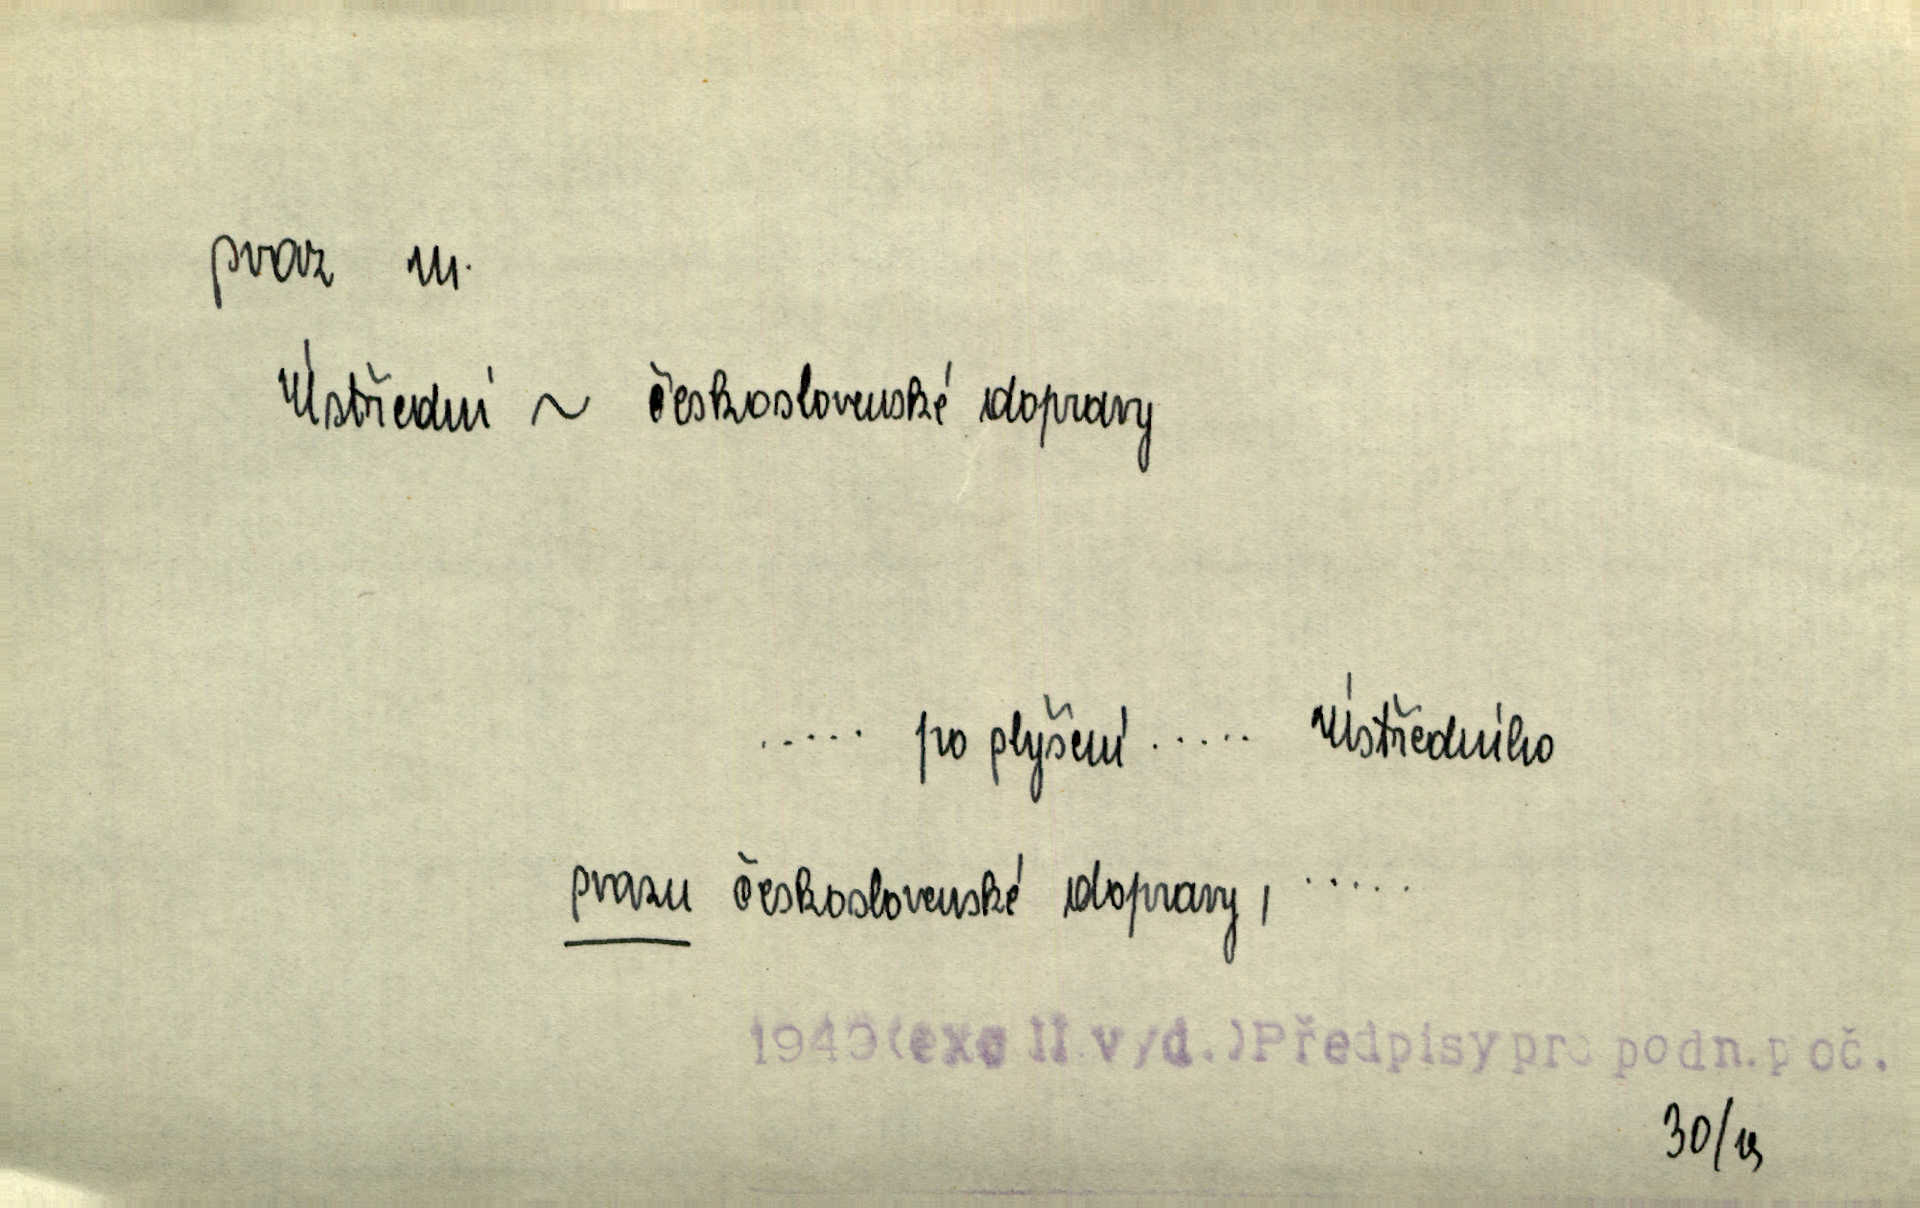 svaz m.
Ústřední ~ československé dopravy
..... po slyšení ..... Ústředního
svazu československé dopravy, .....
(exc II.v/d.)Předpisy pro podn.poč.